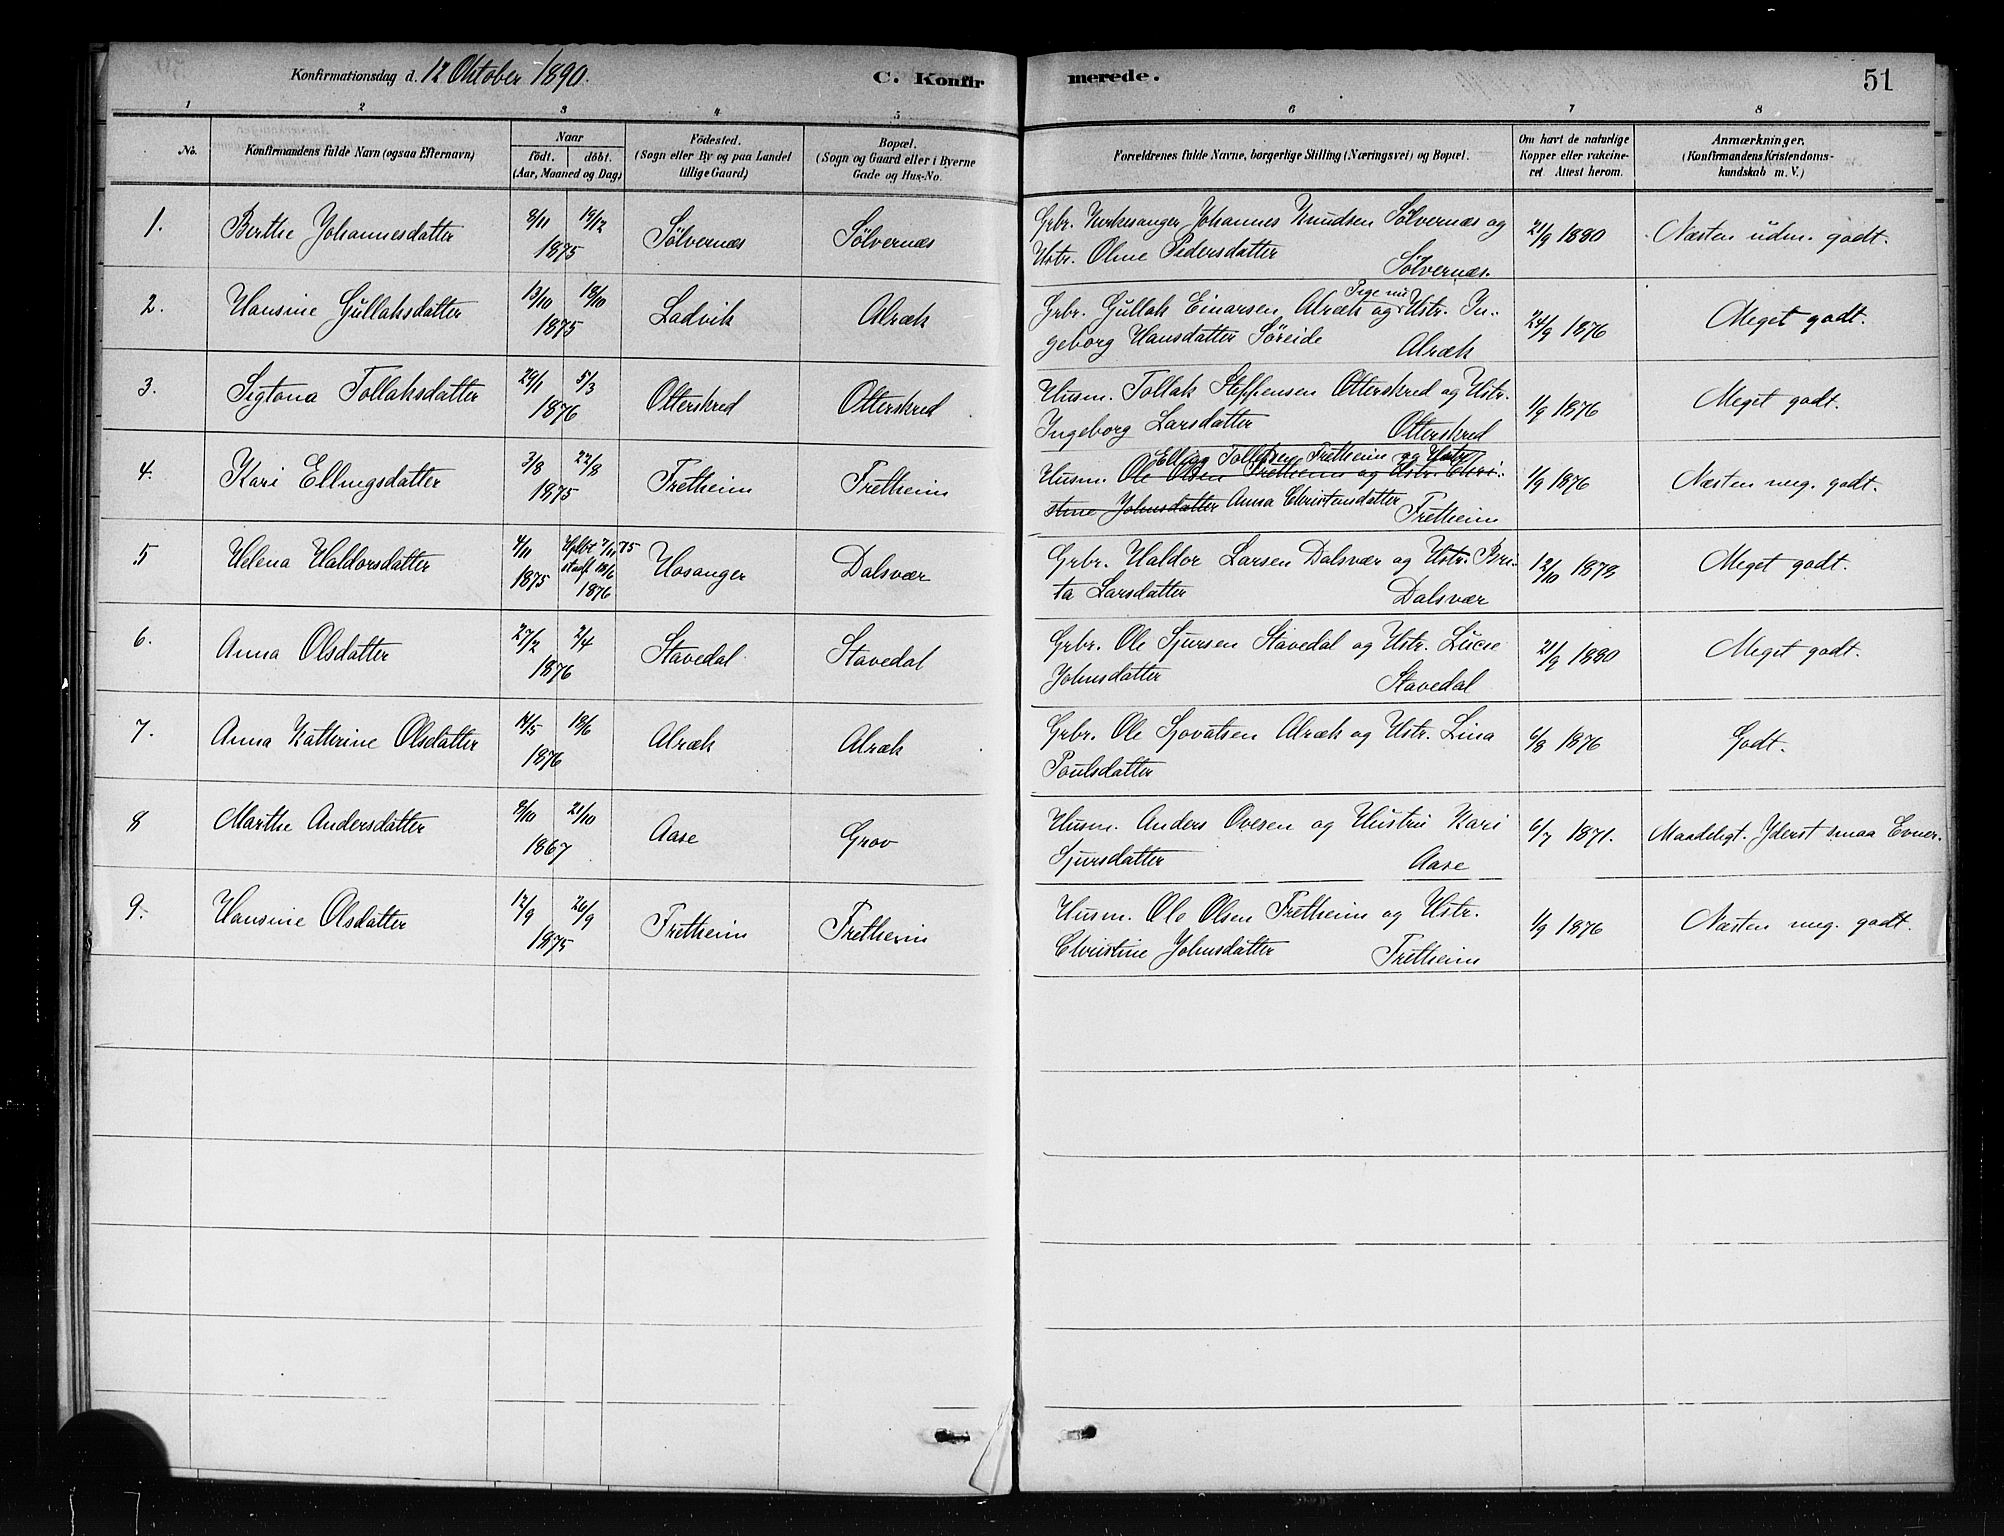 Konfirmationsdag d. 12 Oktober 1890.
C. Konfir
merede.
51
1 2 3 4 5 6 7 8
No.
Konfirmandens fulde Navn (ogsaa Efternavn)
Naar
födt. döbt.
(Aar, Maaned og Dag)
Födested.
(Sogn eller By og paa Landet
tillige Gaard)
Bopæl.
(Sogn og Gaard eller i Byerne
Gade og Hus-No.
Forældrenes fulde Navne, borgerlige Stilling (Næringsvei) og Bopæl.
Om havt de naturlige
Kopper eller vakcine-
ret Attest herom.
Anmærkninger.
(Konfirmandens Kristendoms-
kundskab m. V.)
1. Berthe Johannesdatter 8/11 19/12 1875 Sølvernæs Sølvernæs Grbr. Kirkesanger Johannes Knudsen Sølvernæs og
Ustr. Oline Pedersdatter Sølvernæs. 21/9 1880 Næsten udm. godt.
2. Hansine Gullaksdatter 13/10 18/10 1875 Ladvik Alræk Grbr. Gullak Einarsen Alræk og Pige nu Ustr. In-
geborg Hansdatter Søreide Alræk 24/9 1876 Meget godt.
3. Sigtona Tollaksdatter 29/1 5/3 1876 Otterskred Otterskred Husm. Tollak Steffensen Otterskred og Ustr.
Ingeborg Larsdatter Otterskred 1/9 1876 Meget godt.
4. Kari Ellingsdatter 3/8 22/8 1875 Fretheim Fretheim Elling Tollefsen Fretheim og Ustr.
Husm. Ole Olsen Fretheim og Ustr. Chri-
stine Johnsdatter Anna Christensdatter Fretheim 1/9 1876 Næsten meg. godt.
5 Helena Haldorsdatter 4/11 1875 Hjdbt 7/11 75
stadf. 18/6
1876 Hosanger Dalsvær Grbr. Haldor Larsen Dalsvær og Ustr. Bri-
ta Larsdatter Dalsvær 12/10 1878 Meget godt.
6. Anna Olsdatter 27/2 2/4 1876 Stavedal Stavedal Grbr. Ole Sjursen Stavedal og Ustr. Lucie
Johnsdatter Stavedal 21/9 1880 Meget godt.
7. Anna Katherine Olsdatter 14/5 18/6 1876 Alræk Alræk Grbr. Ole Sjovatsen Alræk og Ustr. Lina
Poulsdatter 6/8 1876 Godt.
8 Marthe Andersdatter 8/10 20/10 1867 Aase Grov Husm. Anders Ovesen og Hustru Kari
Sjursdatter Aase 6/7 1871. Maadeligt. Yderst smaa Evner.
9. Hansine Olsdatter 12/9 26/9 1875 Fretheim Fretheim Husm. Ole Olsen Fretheim og Ustr.
Christine Johnsdatter Fretheim 1/9 1876 Næsten meg. godt.